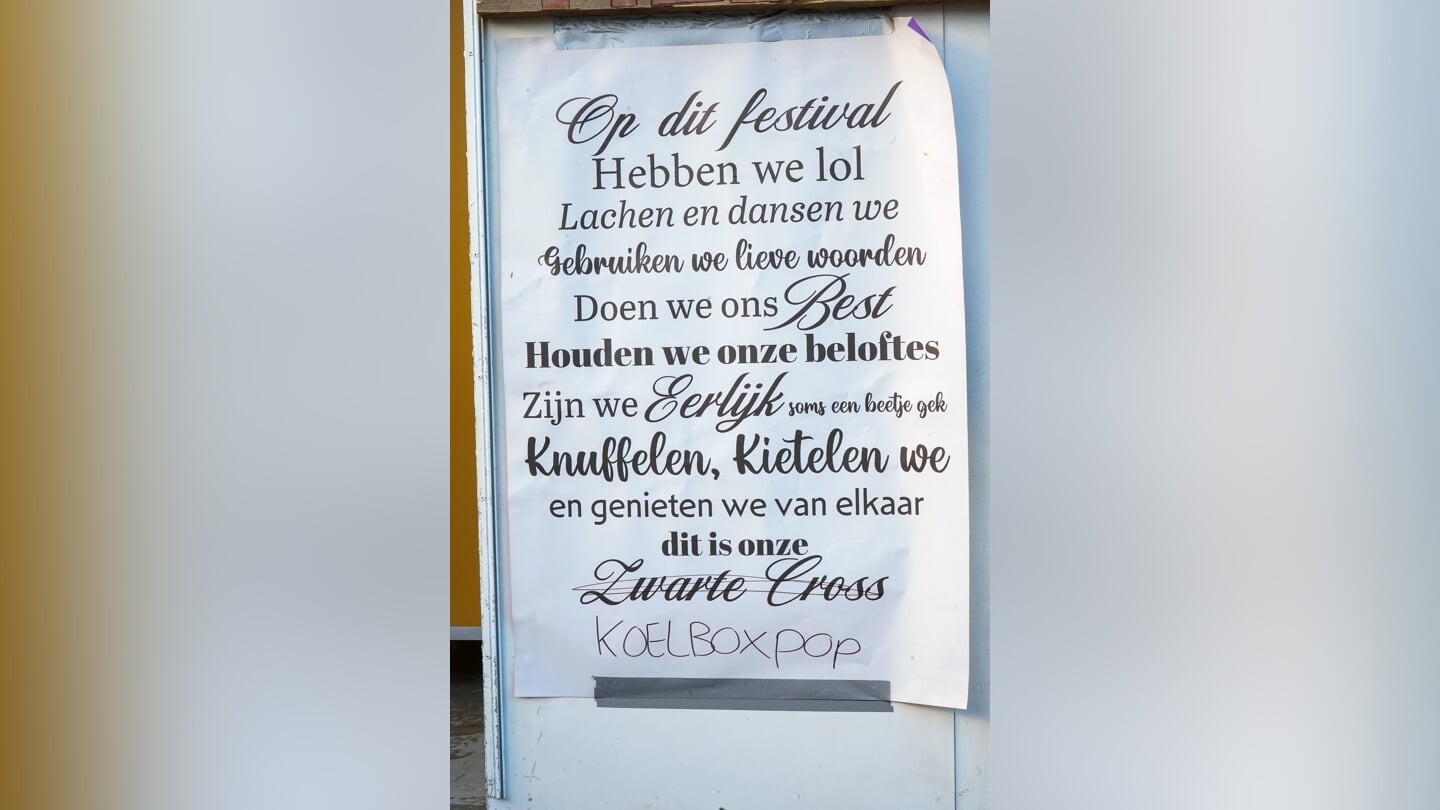 Op dit festival
Hebben we lol
Lachen en dansen we
Gebruiken we lieve woorden
Doen we ons Best
Houden we onze beloftes
Zijn we Eerlijk soms een beetje gek
Knuffelen, Kietelen we
en genieten we van elkaar
dit is onze
Zwarte Cross
KOELBOXPOP